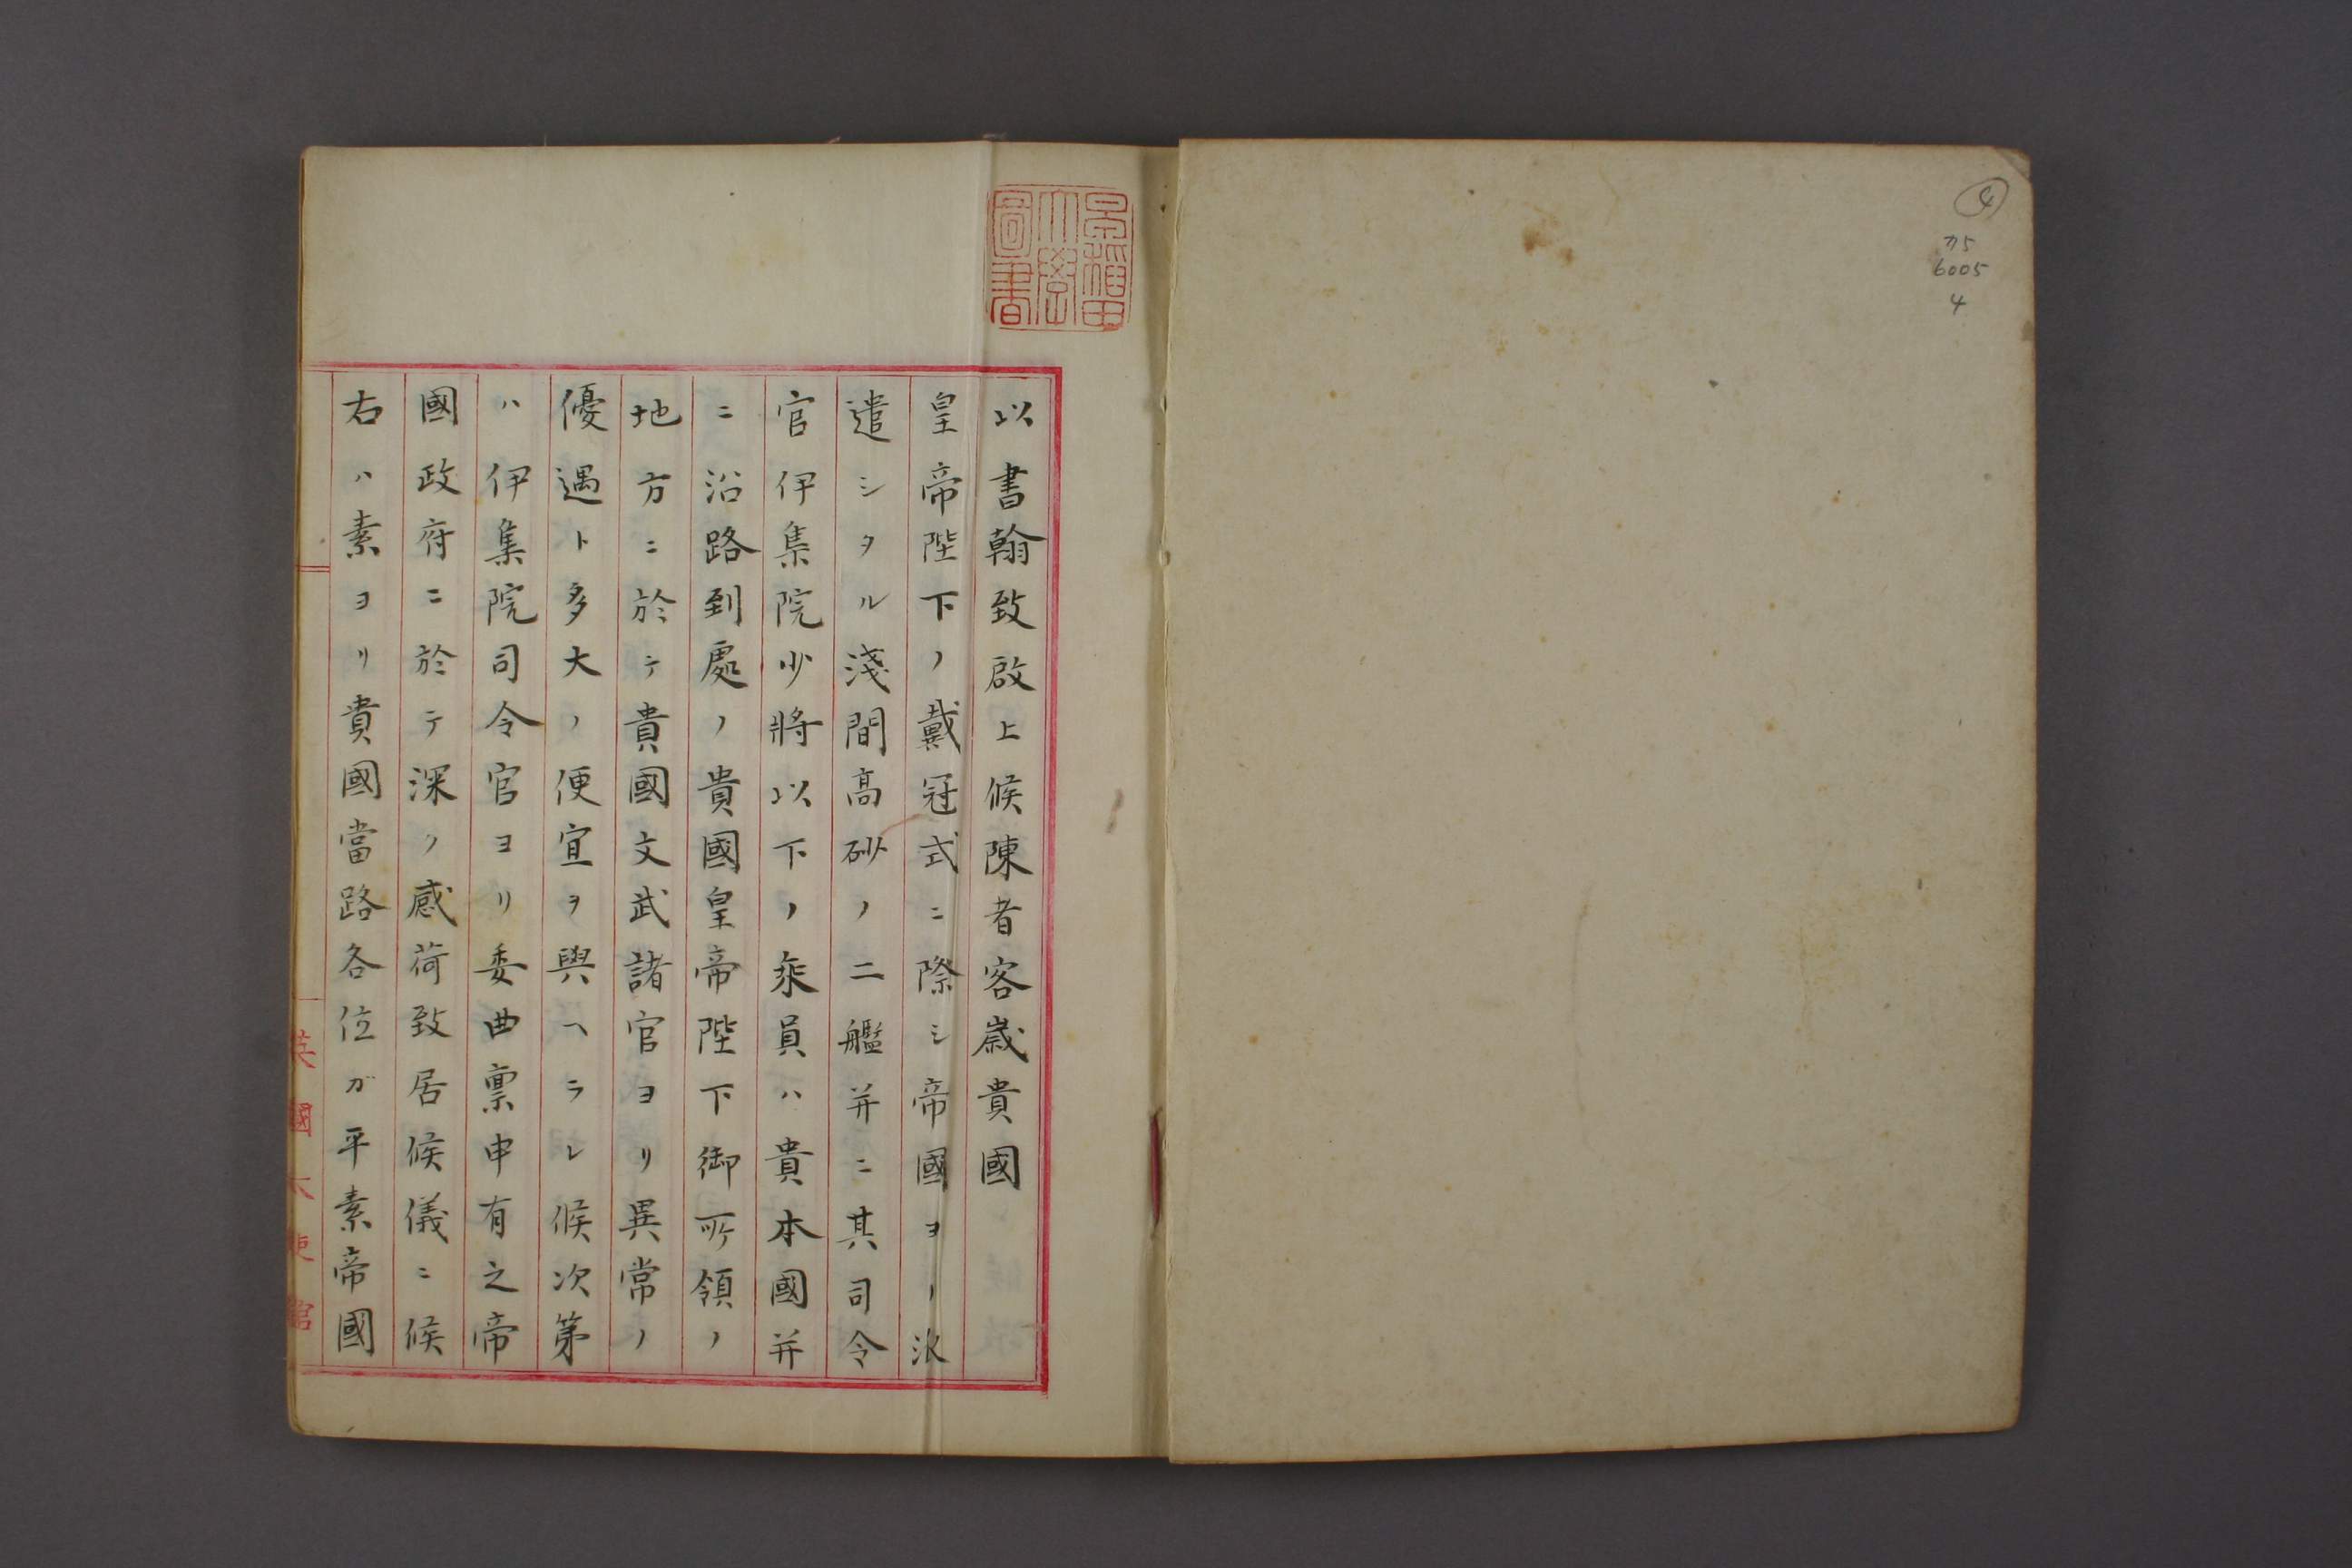 4
カ5
6005
4
早稲田
大學
圖書
以書翰致啟上候陳者客歳貴國
皇帝陛下ノ戴冠式ニ際シ帝國ヨリ派
遣シタル淺間高砂ノ二艦并ニ其司令
官伊集院少將以下ノ乘員ハ貴本國并
ニ沿路到處ノ貴國皇帝陛下御所領ノ
地方ニ於テ貴國文武諸官ヨリ異常ノ
優遇ト多大ノ便宜ヲ與ヘラレ候次第
ハ伊集院司令官ヨリ委曲稟申有之帝
國政府ニ於テ深ク感荷致居候儀ニ候
右ハ素ヨリ貴國當路各位ガ平素帝國
英國大使館